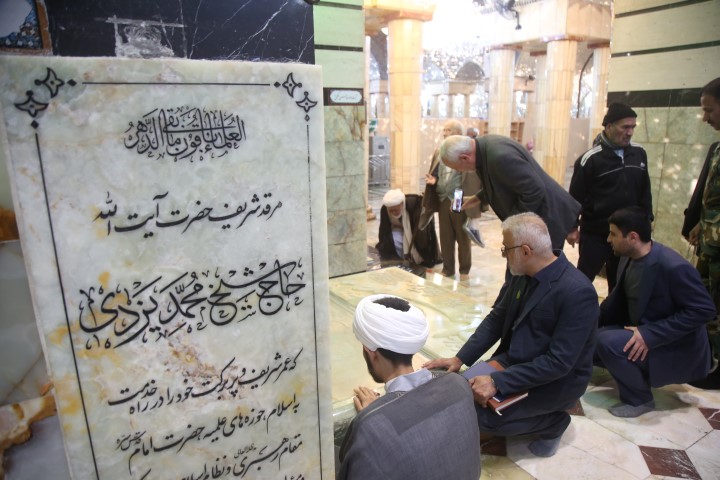 العلماء باقون ما بقی الدهر
مرقد شریف حضرت آیت الله
حاج شیخ محمد یزدی
که عمر شریف و پر برکت خود را در راه خدمت
به اسلام، حوزه های علمیه حضرت امام
مقام رهبری و نظام اسلامی